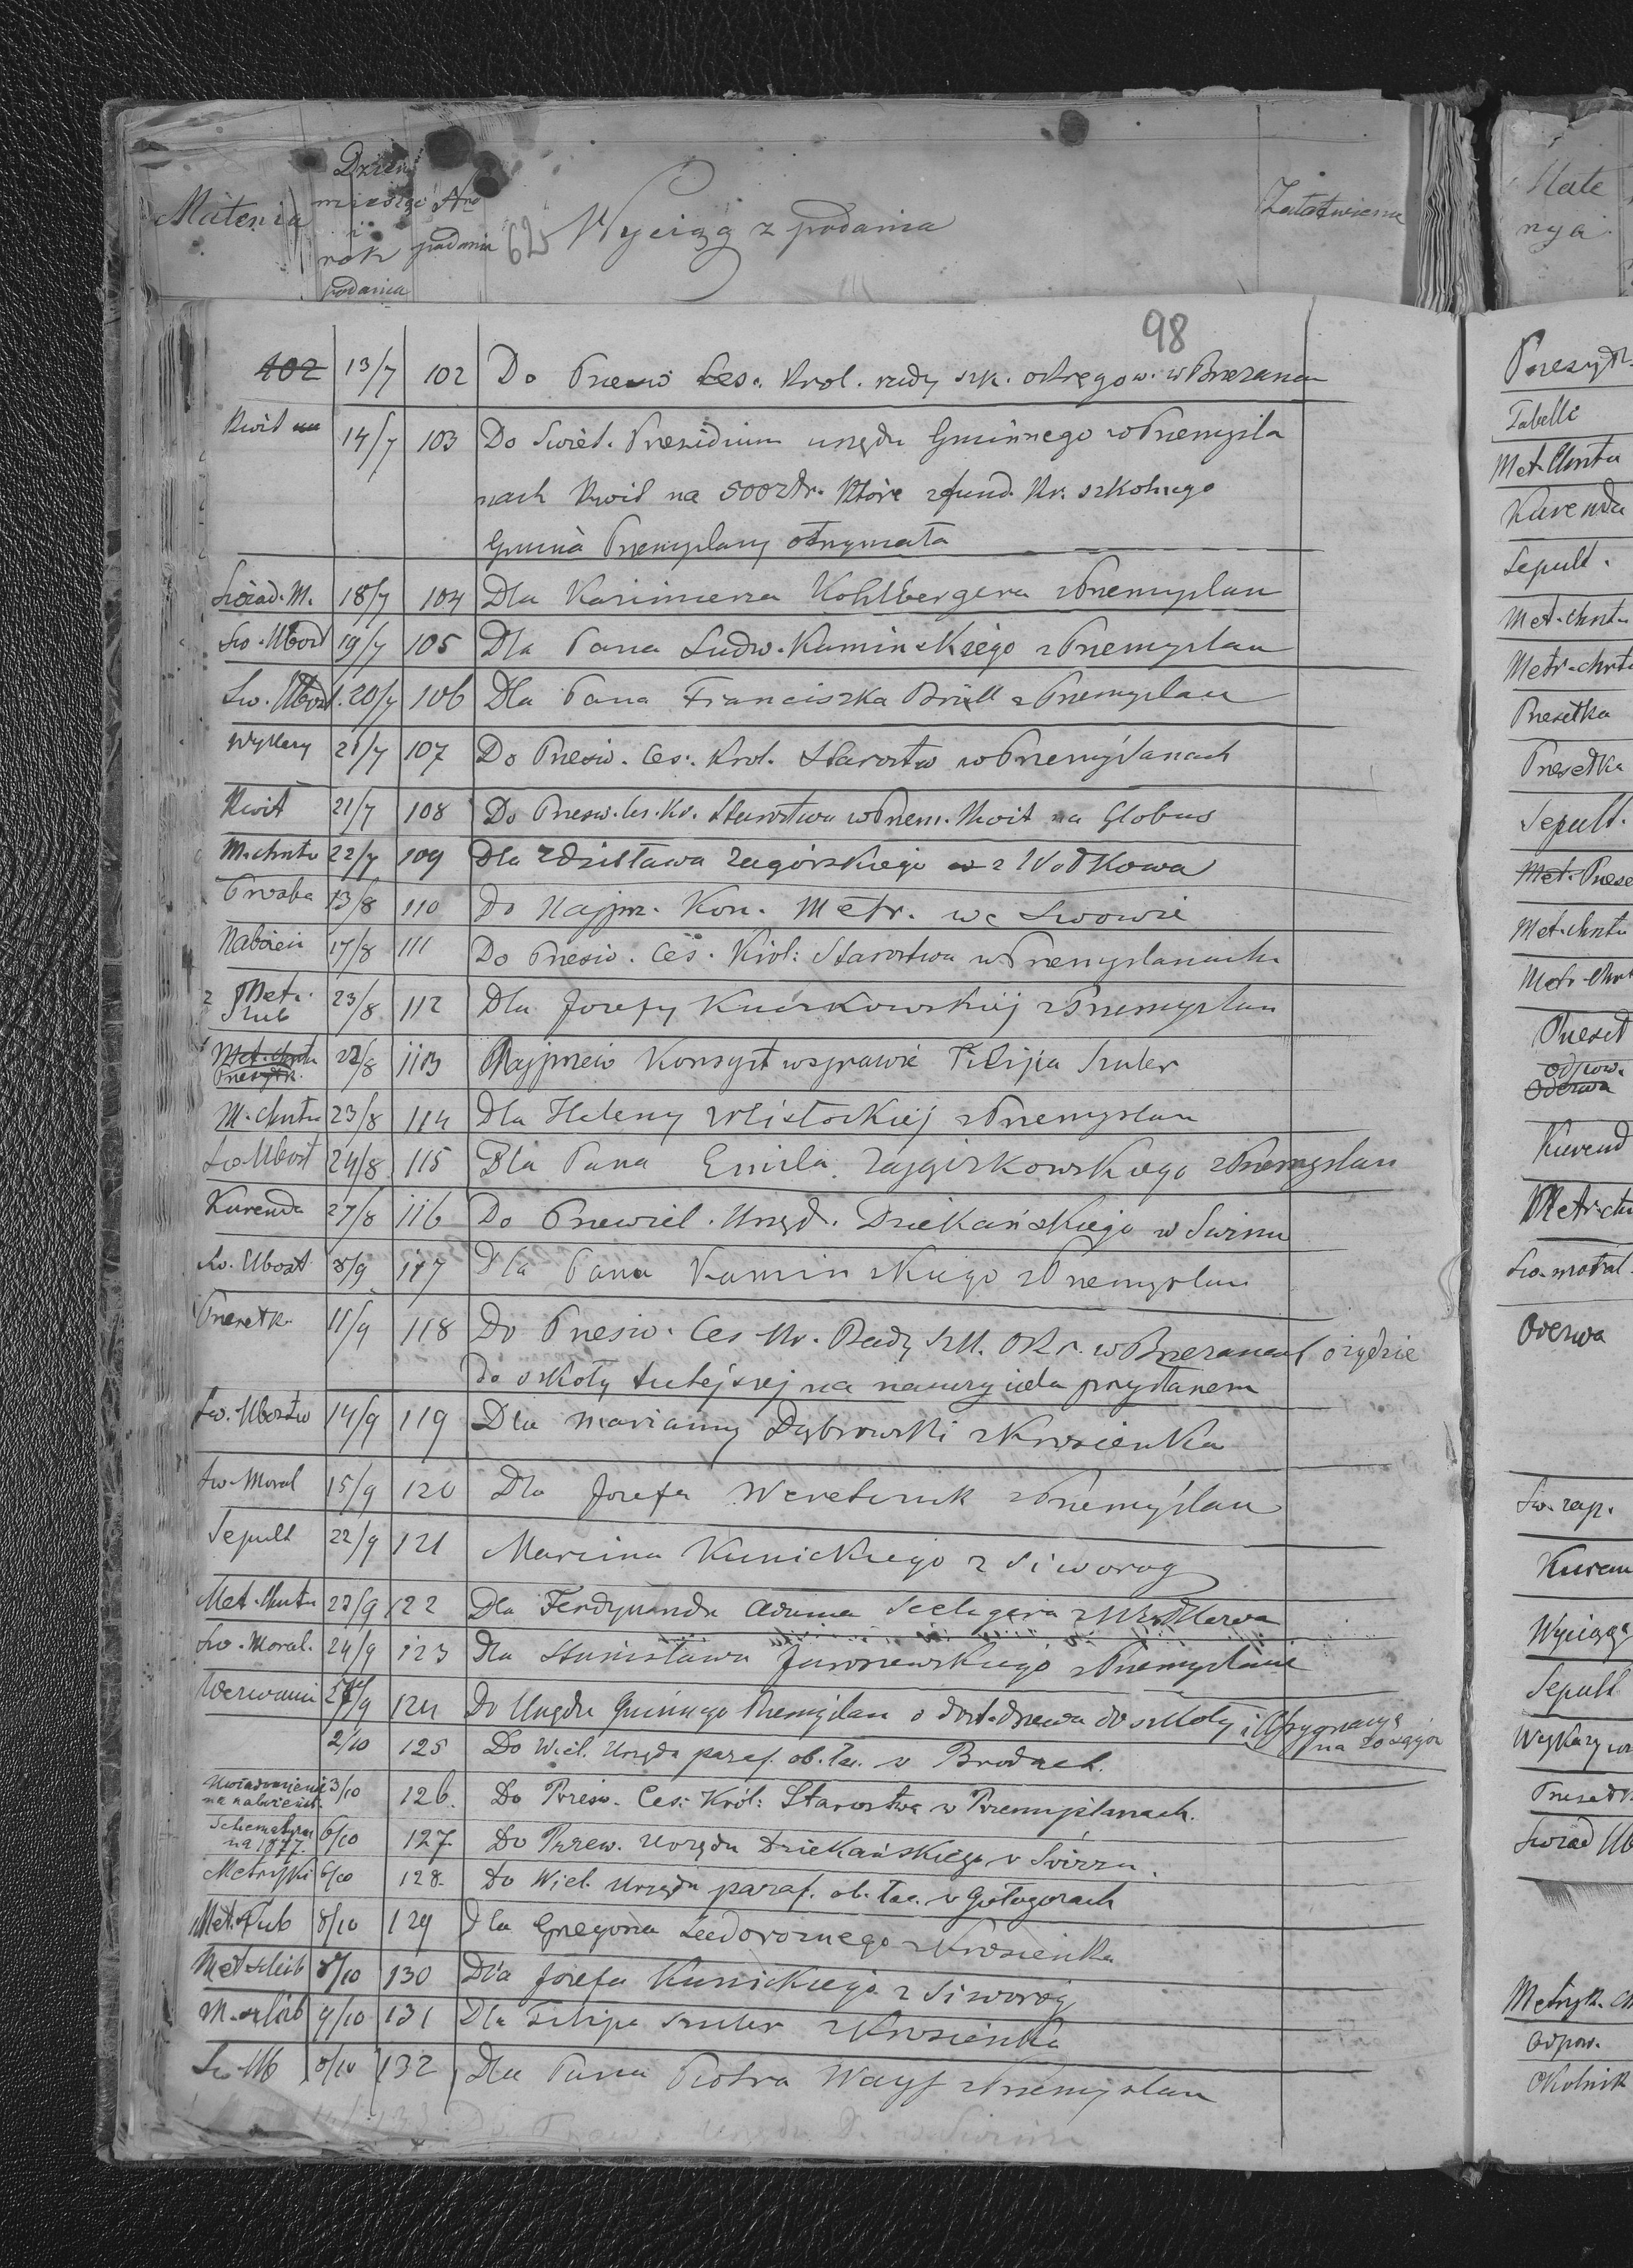 Materia
Dzień
miesiąc
i
rok
podania
Nro
podania
62
Wyciąg z podania
Załatwienie
98
102 13/7 102 Do Przesw Ces. Krol. rady szk. okręgow. w Brzezanach
Kwit 14/7 103 Do Swiet. Prezidium urzędu Gminnego w Przemyśla
nach Kwit na 500 złr. które z fund. Kr. szkolnego
Gmina Przemyślany otrzymała
Swiad. M. 18/7 104 Dla Kazimierza Kohlbergera z Przemyslan
Sw. Ubost 19/7 105 Dla Pana Ludw. Kaminskiego z Przemyslan
Sw. Ubost. 20/7 106 Dla Pana Franciszka Brüll z Przemyslan
Wykazy 21/7 107 Do Przesw. Ces. Krol. Starostw w Przemyślanach
Kwit 21/7 108 Do Przesw. Ces. Kr. Starostwa w Przem. Kwit na Globus
M. chrztu 22/7 109 Dla Zdzisława Zagórskiego z Wołkowa
Prozba 13/8 110 Do Najprz. Kon. Metr. we Lwowie
Nabożeń 17/8 111 Do Przesw. Ces. Król: Starostwa w Przemyslanach
2 Metr.
Szlub 23/8 112 Dla Jozefy Kuczkowskiej z Przemyslan
1 Met. chrztu
Przesyłk. 22/8 113 Najprzew Konsyst w sprawie Filipa Szuler
M. chrztu 23/8 114 Dla Heleny Wlistockiej z Przemyslan
Sw Ubost 24/8 115 Dla Pana Emila z Przemyslan
Kurenda 27/8 116 Do Przewiel. Urzęd. Dziekańskiego w Swirzu
Sw. Ubost 8/9 117 Dla Pana Kaminskiego z Przemyslan
Przesłk. 11/9 118 Do Przesw. Ces Kr. Rady Szk. Okr. w Brzezanach o żydzie
Do szkoły tutejszej na nauczyciela przysłanem
Sw. Ubostw 14/9 119 Dla Marianny Dąbrowski z Krosienka
Sw. Moral 15/9 120 Dla Jozefa Weretenik z Przemyślan
Sepult 22/9 121 Marcina Kunickiego z Siworog
Met. Chrztu 23/9 122 Dla Ferdynanda Adama Seeligera z
Sw. Moral. 24/9 123 Dla Stanisława Jaroszewskiego z Przemyslan
Wezwanie 124 Do Urzędu Gminnego Przemyślan o dost. drzewa do szkoły i
na sągów
2/10 125 Do Wiel. Urzędu paraf. ob. łac. w Brodach.
Uwiadomienie
na nabożeńst. 3/10 126. Do Prześw. Ces: Król: Starostwa w Przemyślanach.
Schematyzm
na 1877. 6/10 127 Do Przew. Urzędu Dziekańskiego w Świrzu.
Metryki 6/10 128. Do Wiel. Urzędu paraf. ob. łac. w Gołogorach
Met. Szlub 8/10 129 Dla Grzegorza z Krosienka
Met szlub 8/10 130 Dla Jozefa Kunickiego z Siworog
M. szlub 9/10 131 Dla Filipa Szuler z Krosienka
Sw Ub 8/10 132 Dla Pana Piotra Wayf z Przemyslan
Mate
rya
Przesyłk
Tabelli
Met. Chrztu
Kurenda
Sepult.
Met. chrztu
Metr. chrztu
Przesełka
Przesełka
Sepult.
Met. Przes
Met. chrztu
Metr. Chrt
Przeseł
Odpow.
Odezwa
Kurend
Metr. ch
Sw. moral.
Odezwa
Sw. zap.
Kuren
Wyciągą
Sepult
Wykazy
Przesełk
Swiad Ub
Metryk. Ch
Odpow.
Okolnik